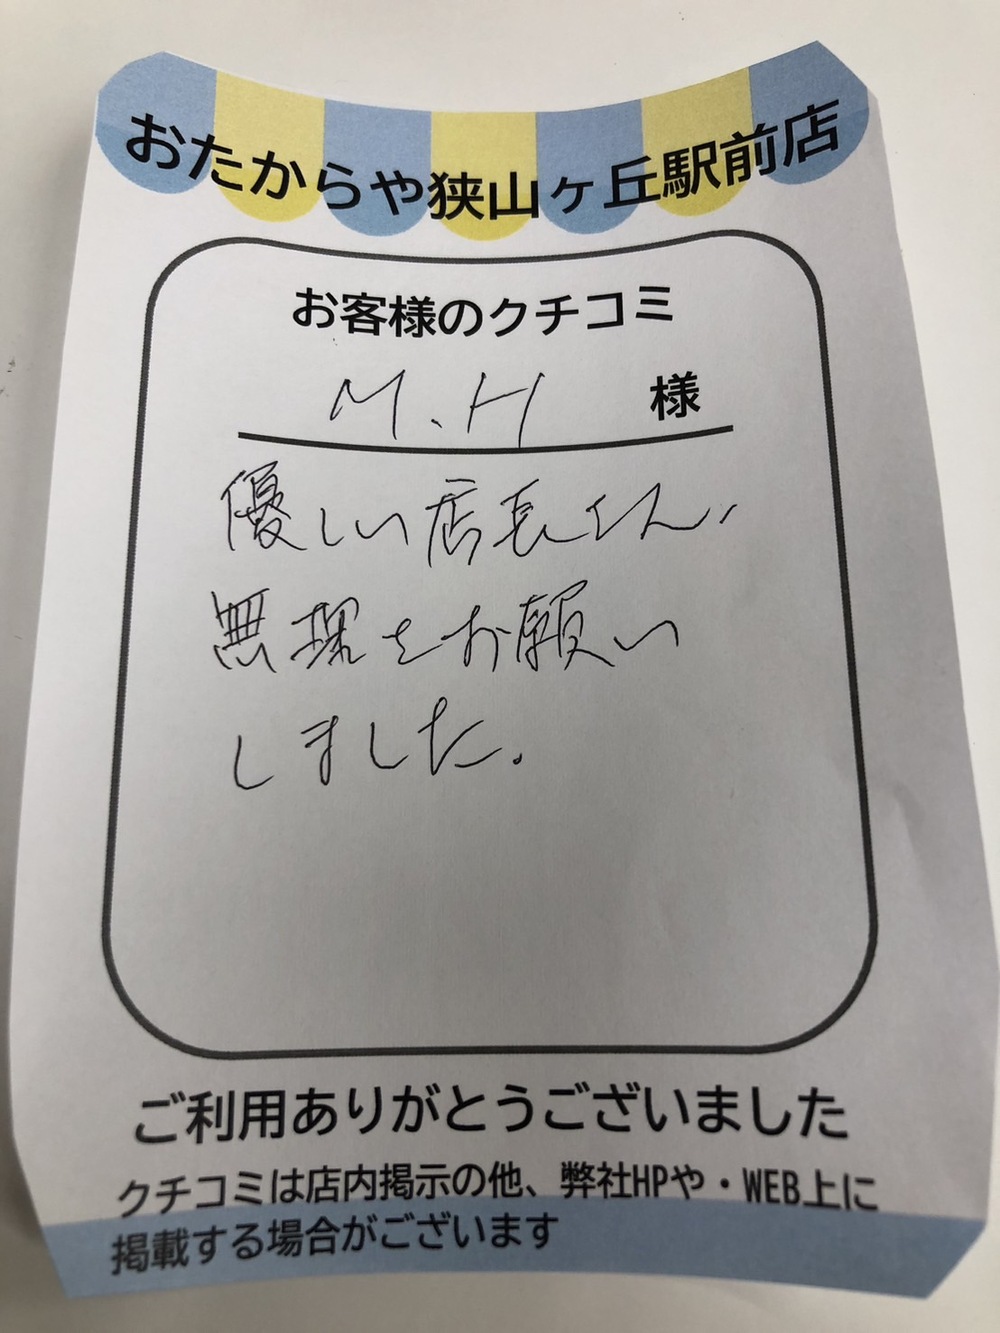 おたからや狭山ヶ丘駅前店
お客様のクチコミ
M.H 様
優しい店長さん、
無理をお願い
しました。
ご利用ありがとうございました
クチコミは店内掲示の他、弊社HPや・WEB上に
掲載する場合がございます